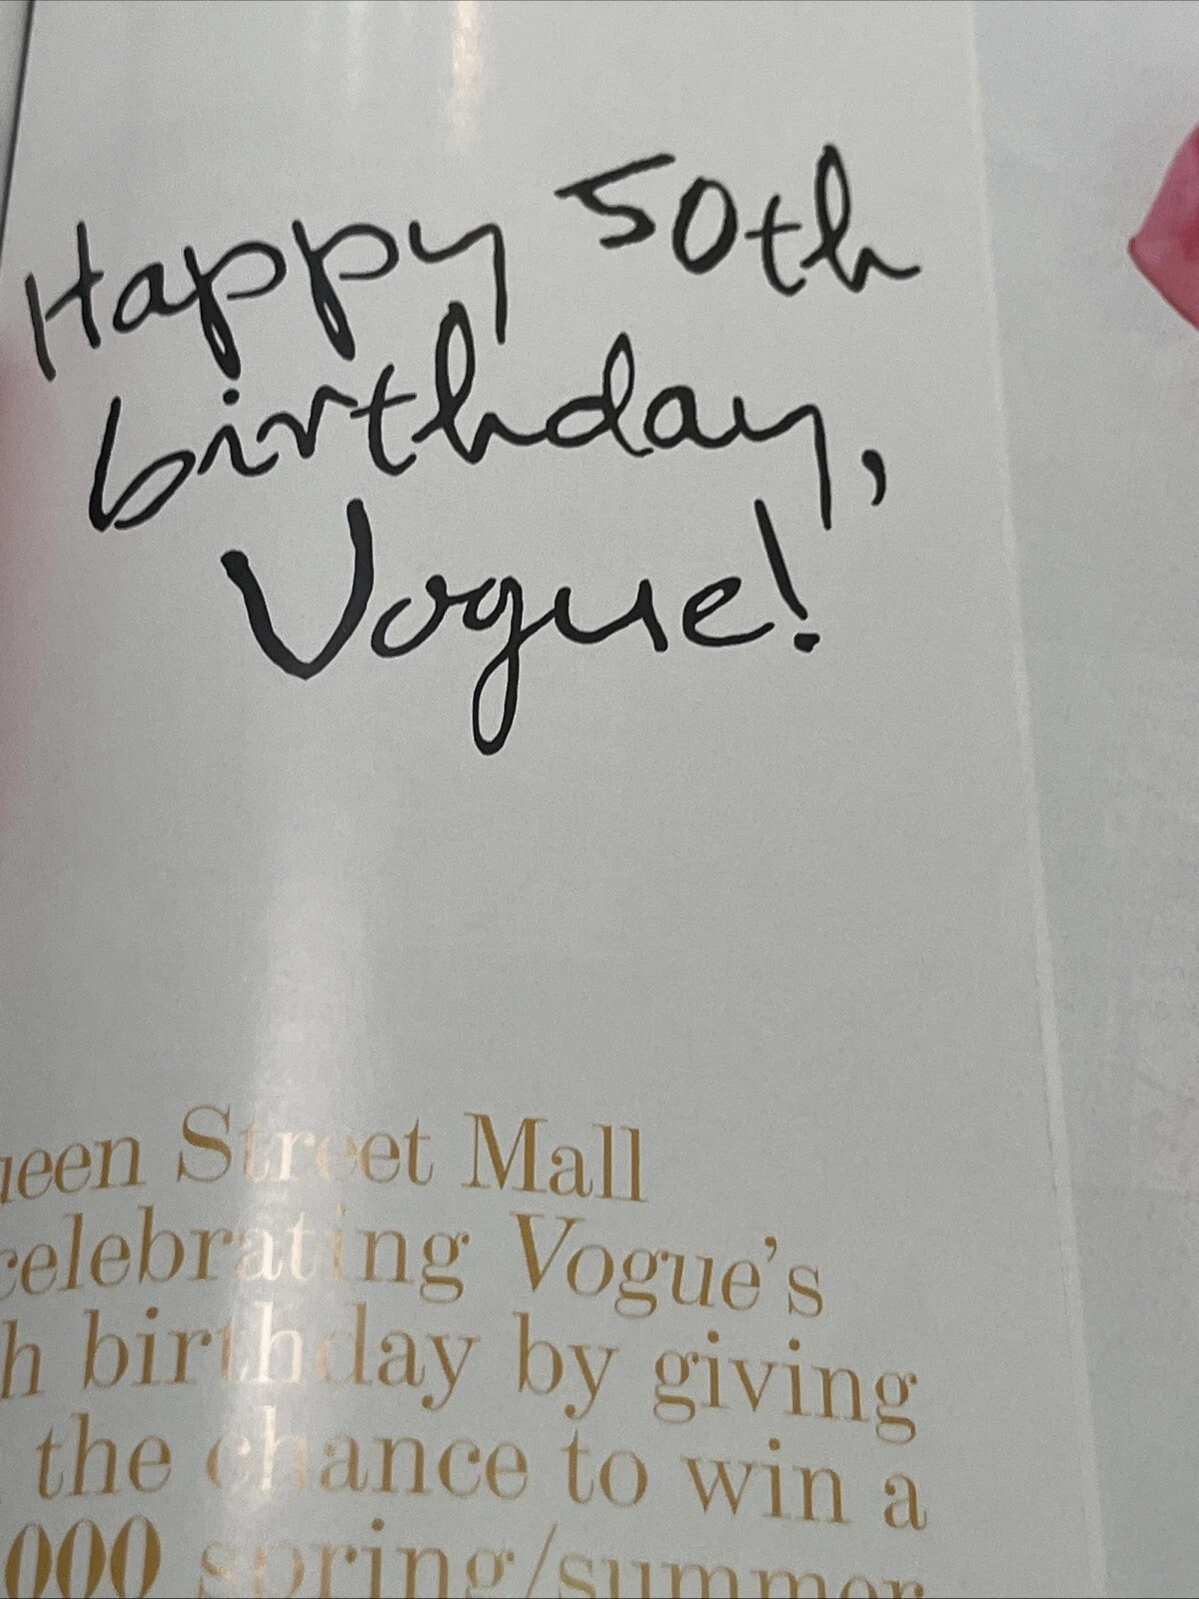 Happy 50th
birthday,
Vogue!
Street Mall
celebrating Vogue's
birthday by giving
the chance to win a
000 spring/summer